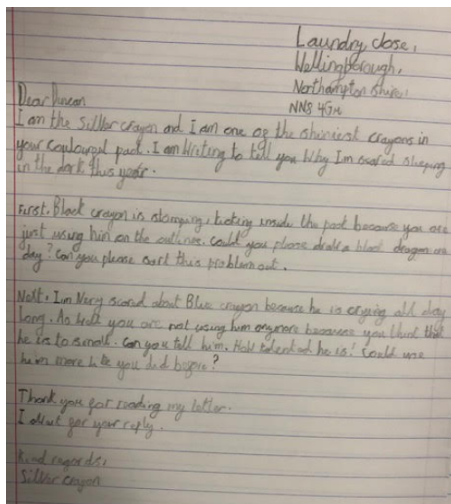 Laundry close,
Wellingborough,
Northampton shire,
NN8 4GH
Dear
I am the Silver crayon and I am one of the shiniest crayons in
your coulourd pack. I am Writing to tell you Why Im scared sleeping
in the dark this year.
First. Black crayon is stomping, inside the pack because you are
just using him on the outlines. could you please draw a black dragon one
day? Can you please sort this problem out.
Next, I'm Very scared about Blue crayon because he is crying all day
long. As well you are not using him anymore because you think that
he is to small. can you tell him. How talented he is! Could use
him more like you did before?
Thank you for reading my letter.
I for your reply.
Kind regards,
Silver crayon